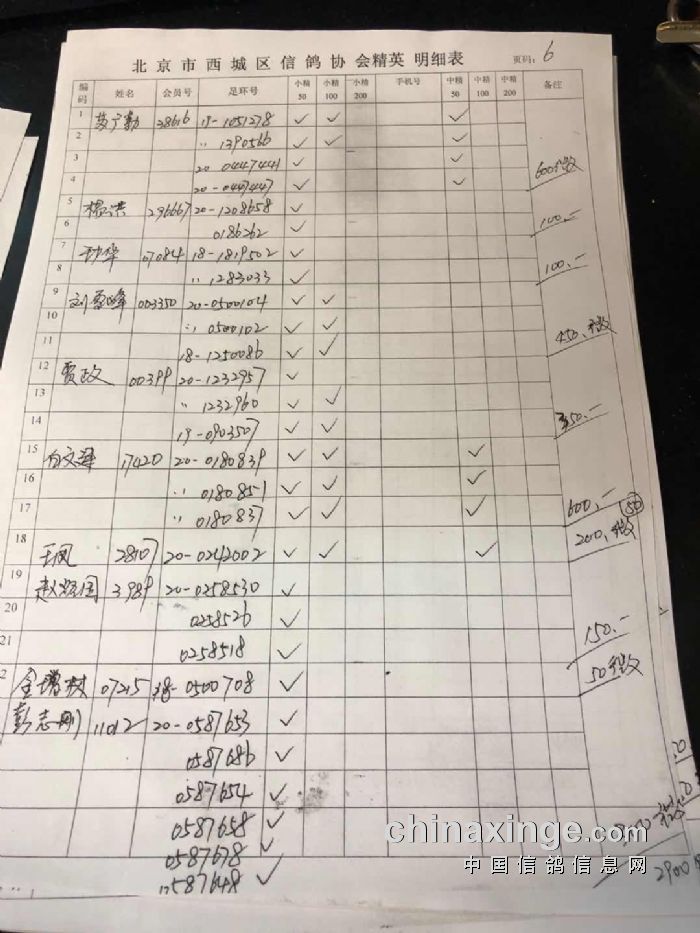 北京市西城区信鸽协会精英 明细表 页码：6
编码 姓名 会员号 足环号 小精50 小精100 小精200 手机号 中精50 中精100 中精200 备注
1 28616 19-1051278 ✓ ✓ ✓
2 " 1390566 ✓ ✓ ✓
3 20 0447441 ✓ ✓
4 20-0447447 ✓ ✓ 600
5 杨洪 296667 20-1208658 ✓
6 0186262 ✓ 100.-
7 07084 18-1819502 ✓
8 " 1283033 ✓ 100.-
9 刘 峰 003350 20-0500104 ✓ ✓
10 " 0500102 ✓ ✓
11 18-1250086 ✓ ✓ 450.
12 贾政 00399 20-1232957 ✓
13 " 1232960 ✓ ✓
14 19-0903507 ✓ ✓ 350.-
15 白文 17420 20-0180839 ✓ ✓ ✓
16 " 0180851 ✓ ✓ ✓
17 " 0180837 ✓ ✓ ✓ 600.-
18 王凤 28107 20-0242002 ✓ ✓ ✓ 200. 50
19 赵 国 3989 20-0258530 ✓
20 0258526 ✓
21 0258518 ✓ 150.-
2 金 树 07215 18-0500708 ✓ 50
彭志刚 11012 20-0587653 ✓
0587686 ✓
0587654 ✓
0587658 ✓
0587678 ✓
587648 ✓
2900
chinaxinge.com
中国信鸽信息网